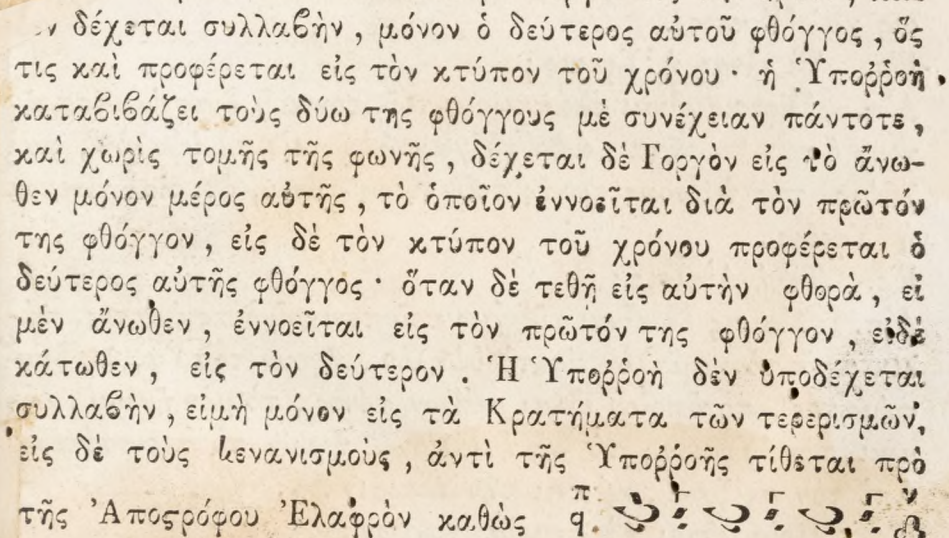 δέχεται συλλαβὴν, μόνον ὁ δεύτερος αὐτοῦ φθόγγος, ὅς
τις καὶ προφέρεται εἰς τὸν κτύπον τοῦ χρόνου· ἡ Ὑποῤῥοὴ
καταβιβάζει τοὺς δύω της φθόγγους μὲ συνέχειαν πάντοτε,
καὶ χωρὶς τομῆς τῆς φωνῆς, δέχεται δὲ Γοργὸν εἰς τὸ ἄνω-
θεν μόνον μέρος αὐτῆς, τὸ ὁποῖον ἐννοεῖται διὰ τὸν πρῶτόν
της φθόγγον, εἰς δὲ τὸν κτύπον τοῦ χρόνου προφέρεται ὁ
δεύτερος αὐτῆς φθόγγος· ὅταν δὲ τεθῇ εἰς αὐτὴν φθορὰ, εἰ
μὲν ἄνωθεν, ἐννοεῖται εἰς τὸν πρῶτόν της φθόγγον, εἰδὲ
κάτωθεν, εἰς τὸν δεύτερον. Ἡ Ὑποῤῥοὴ δὲν ὑποδέχεται
συλλαβὴν, εἰμὴ μόνον εἰς τὰ Κρατήματα τῶν τερερισμῶν,
εἰς δὲ τοὺς κενανισμοὺς, ἀντὶ τῆς Ὑποῤῥοῆς τίθεται πρὸ
τῆς Ἀποςρόφου Ἐλαφρὸν καθὼς